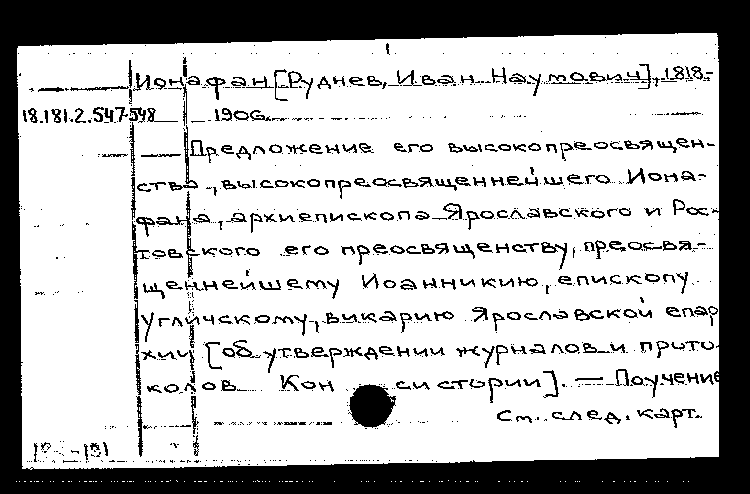 Ионафан [Руднев, Иван Наумович], 1818-
18.181.2.547-548 1906.
Предложение его высокопреосвящен-
ства, высокопреосвященнейшего Иона-
фана, архиепископа Ярославского и Рос-
товского его преосвященству, преосвя-
щеннейшему Иоанникию, епископу
Угличскому, викарию Ярославской епар
хии [об утверждении журналов и прото-
колов Консистории]. — Поучение
См. след. карт.